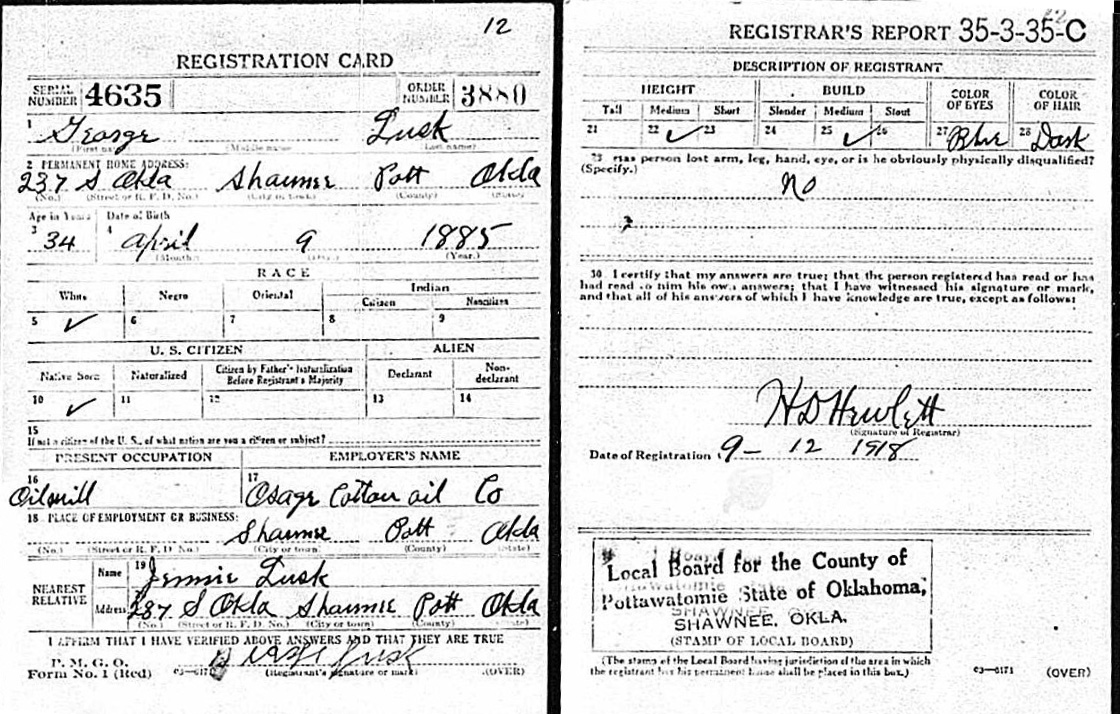 12
REGISTRATION CARD
SERIAL NUMBER 4635 ORDER NUMBER 3880
1 George Lusk
(First name) (Middle name) (Last name)
2 PERMANENT HOME ADDRESS:
237 S Okla Shawnee Pott Okla
(No.) (Street or R. F. D. No.) (City or town) (County) (State)
Age in Years Date of Birth
3 34 4 April 9 1885
(Month.) (Day.) (Year.)
RACE
White Negro Oriental Indian
Citizen Noncitizen
5 ✓ 6 7 8 9
U. S. CITIZEN ALIEN
Native Born Naturalized Citizen by Father's Naturalization Before Registrant's Majority Declarant Non-declarant
10 ✓ 11 12 13 14
15
If not a citizen of the U. S., of what nation are you a citizen or subject?
PRESENT OCCUPATION EMPLOYER'S NAME
16 Oilmill 17 Osage Cotton oil Co
18 PLACE OF EMPLOYMENT OR BUSINESS:
Shawnee Pott Okla
(No.) (Street or R. F. D. No.) (City or town) (County) (State)
NEAREST RELATIVE Name 19 Jennie Lusk
Address 237 S Okla Shawnee Pott Okla
(No.) (Street or R. F. D. No.) (City or town) (County) (State)
I AFFIRM THAT I HAVE VERIFIED ABOVE ANSWERS AND THAT THEY ARE TRUE
P. M. G. O.
Form No. 1 (Red) 03—6171 (Registrant's signature or mark) (OVER)
Lusk
12
REGISTRAR'S REPORT 35-3-35-C
DESCRIPTION OF REGISTRANT
HEIGHT BUILD COLOR OF EYES COLOR OF HAIR
Tall Medium Short Slender Medium Stout
21 22 ✓ 23 24 25 ✓ 26 27 Blue 28 Dark
29 Has person lost arm, leg, hand, eye, or is he obviously physically disqualified?
(Specify.)
no
30 I certify that my answers are true; that the person registered has read or has
had read to him his own answers; that I have witnessed his signature or mark,
and that all of his answers of which I have knowledge are true, except as follows:
H D Hewlett
(Signature of Registrar)
Date of Registration 9- 12 1918
Local Board for the County of
Pottawatomie State of Oklahoma,
SHAWNEE, OKLA.
(STAMP OF LOCAL BOARD)
(The stamp of the Local Board having jurisdiction of the area in which
the registrant has his permanent home shall be placed in this box.)
03—6171 (OVER)